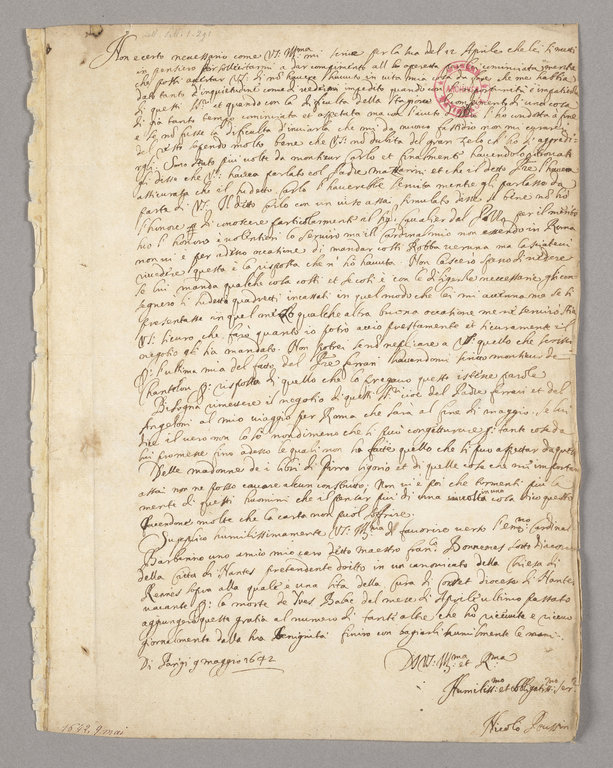 Non è certo necessario come V.S. Ill.ma mi scrive per la sua del 12 Aprile che lei si metti
in pensiero per sollecitarmi a dar compimento all
che possi aquitar V.S. di non havere havuto in vita mia cosa che me habbia
dato tanto d'inquietudine come di vedermi impedito quando con
di questi SS.ri et quando con la dificulta della stagione compimento di una cosa
di già tanto tempo cominciata et aspetata ma con l'aiuto l'ho condotta a fine
e se non fusse la dificulta d'inviarla che mi da nuovo fastidio non mi curarei
del resto sapendo molto bene che V.S. non dubita del gran zelo ch'ho di
Sono stato più volte da monsieur Carlo et finalmente havendolo
mi disse che V.S. haveva parlato col Padre et che il detto Pre l'haveva
assicurata che il sudetto Carlo l'haverebbe servita mentre gli parlasse da
parte di V.S. Il detto Carlo con un viso assai simulato disse si bene non ho
l'honore di conoscere particolarmente al Sig. Cavalier dal Pozzo per il merito
suo l'honoro e volentieri lo servirò ma il Cardinal mio non essendo in Roma
non vi è per adesso occasione di mandar costì robba veruna ma lasciateci
rivedere questa è la risposta che n'ho havuta. Non lascerò spesso di vedere
se lui manda qualche cosa costì et se così è con le diligenze necessarie gli con-
segnero il sudetto quadretto incassato in quel modo che lei mi avisa ma se si
presentasse in quel mentre qualche altra buona occasione me ne servirò stia
V.S. sicuro che farò quanto io potrò acciò prestamente et sicuramente il
negotio gli sia mandato. Non potrei senon replicare a V.S. quello che scrissi
P. l'ultima mia del fatto del Pre Ferrari havendomi scritto monsieur de
Chantelou P. risposta di quello che lo pregavo queste istesse parole
Bisogna rimettere il negotio di questi SS.ri cioè del Padre Ferrari et del
Angeloni al mio viaggio per Roma che sarà al fine di maggio, se lui
dice il vero non lo so nondimeno che si può congetturare P. tante cose da
lui promesse sino adesso le quali non ha fatte quello che si può aspettar da questa
Delle madonne de i libri di Pirro Ligorio et di quelle cose che
assai non ne posso cavare alcun construtto. Non vi è poi che tormenti più la
mente di questi huomini che il pensar più di una volta in una cosa
havendone molte che la carta non può soffrire.
Supplico humilissimamente V.S. Ill.ma di favorire verso l'em.mo Cardinal
Barberino uno amico mio caro detto maestro Fran.o Bonnenas sotto diacono
della citta di Nantes pretendente dritto in un canonicato della chiesa di
Rennes sopra alla quale è una lite della cura di Corset diocesi di Nantes
vacante P. la morte de Yves Babic del mese di Aprile ultimo passato
aggiungerà questa gratia al numero di tanti altre che ho ricevute e ricevo
giornalmente dalla sua benignità finirò con bagiarli humilmente le mani.
Di Parigi 9 maggio 1642
Di V.S. Ill.ma et R.ma
Humiliss.mo et obligatiss.mo ser.re
Nicolo Poussin
1642. 9 mai